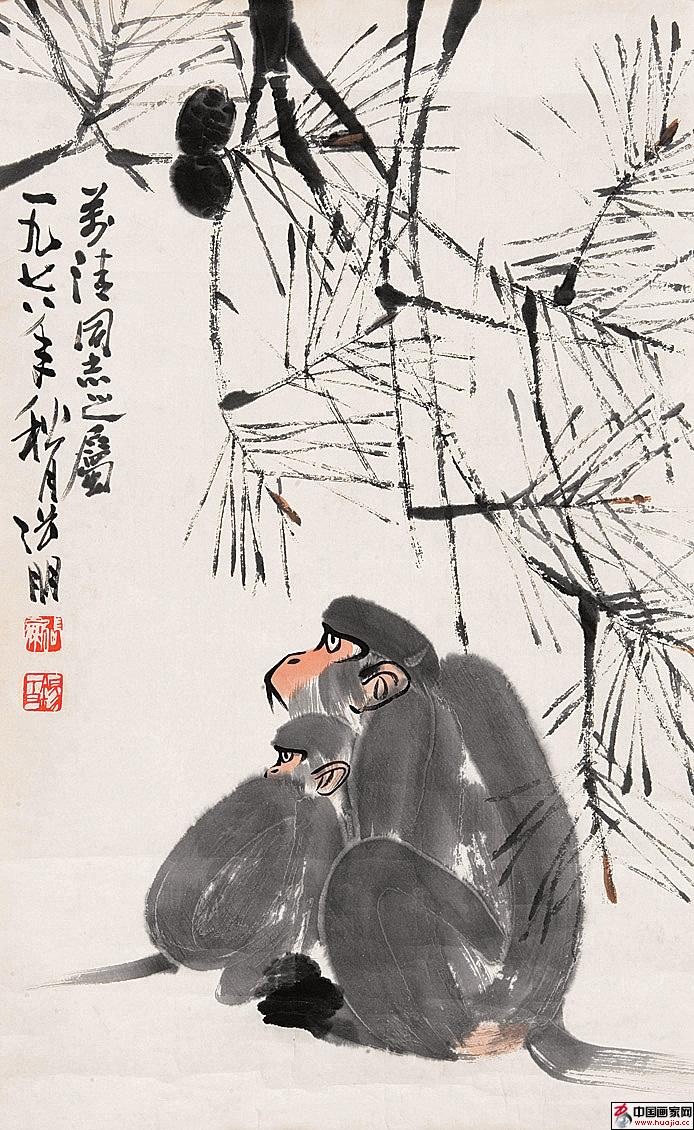 清同志之属
一九七八年秋月明
中国画家网
www.huajia.cc